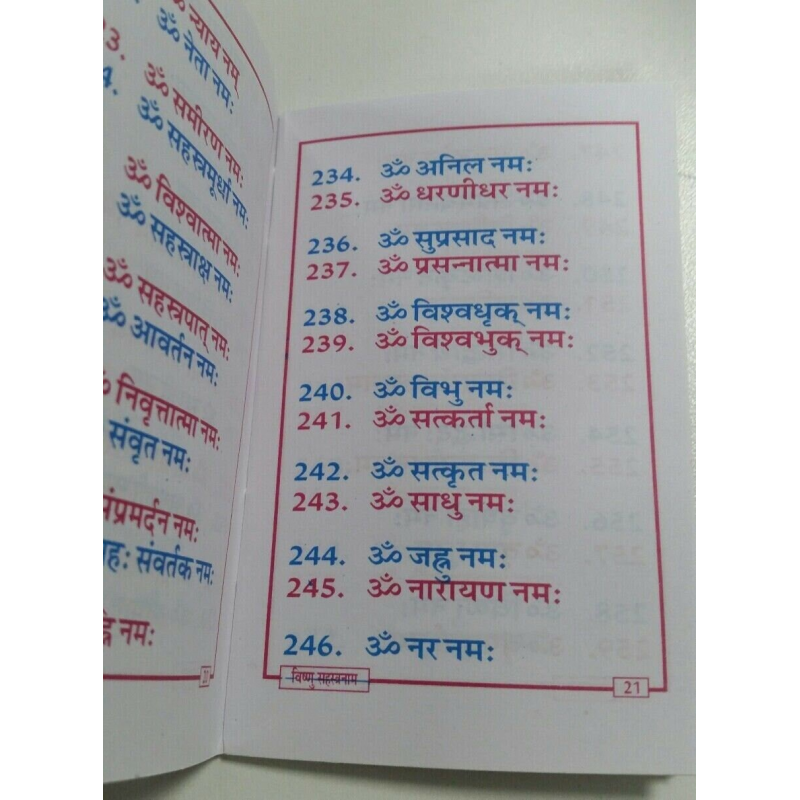 ॐ न्याय नम्
ॐ नेता नमः
ॐ समीरण नमः
ॐ सहस्त्रमूर्धा नमः
ॐ विश्वात्मा नमः
ॐ सहस्त्राक्ष नमः
ॐ सहस्त्रपात् नमः
ॐ आवर्तन नमः
ॐ निवृत्तात्मा नमः
संवृत नमः
संप्रमर्दन नमः
संवर्तक नमः
नमः
234. ॐ अनिल नमः
235. ॐ धरणीधर नमः
236. ॐ सुप्रसाद नमः
237. ॐ प्रसन्नात्मा नमः
238. ॐ विश्वधृक् नमः
239. ॐ विश्वभुक् नमः
240. ॐ विभु नमः
241. ॐ सत्कर्ता नमः
242. ॐ सत्कृत नमः
243. ॐ साधु नमः
244. ॐ जह्नु नमः
245. ॐ नारायण नमः
246. ॐ नर नमः
विष्णु सहस्त्रनाम
21